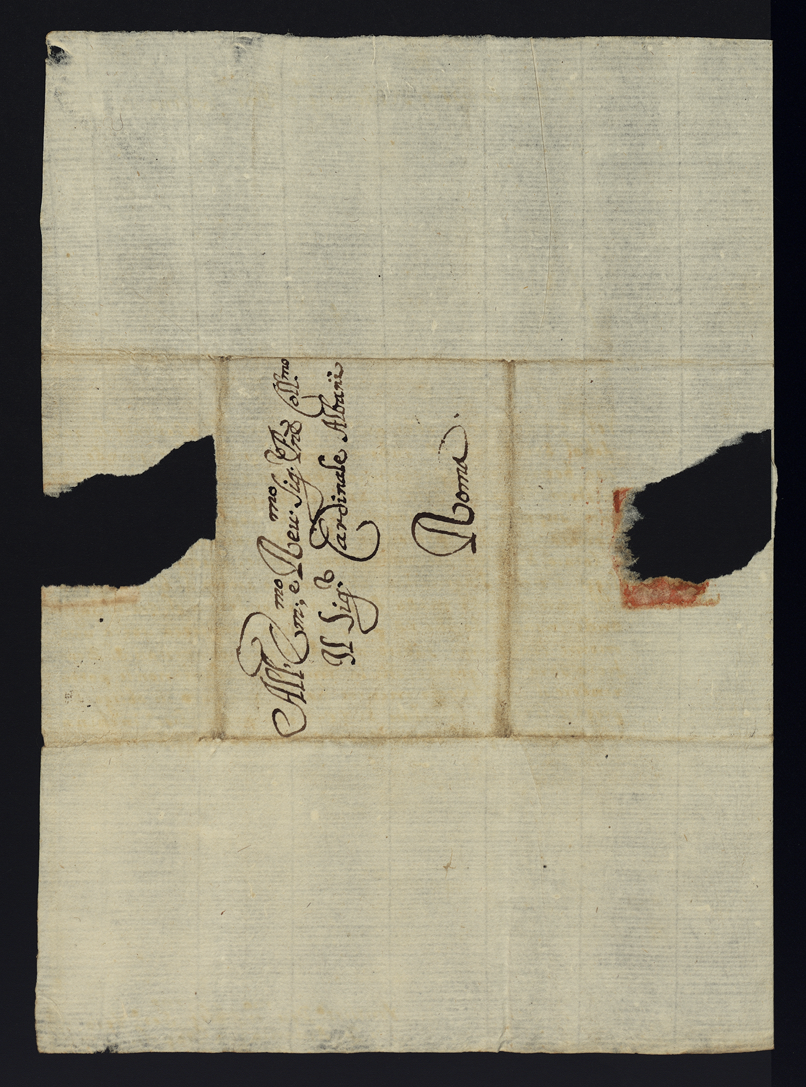 All' Em:mo, e Rev:mo Sig.r Pne Coll.mo
Il Sig.r Cardinale Albani
Roma.